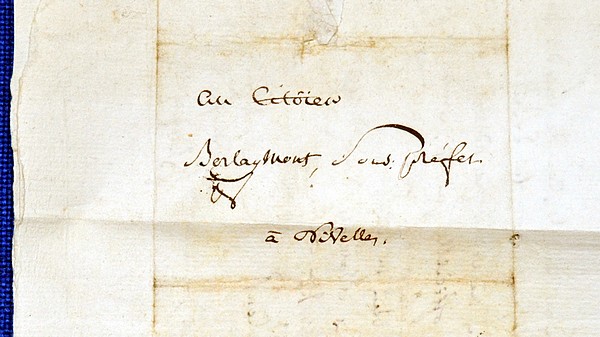 Au Citöien
Berlaymont, Sous. préfet
à Nivelles.